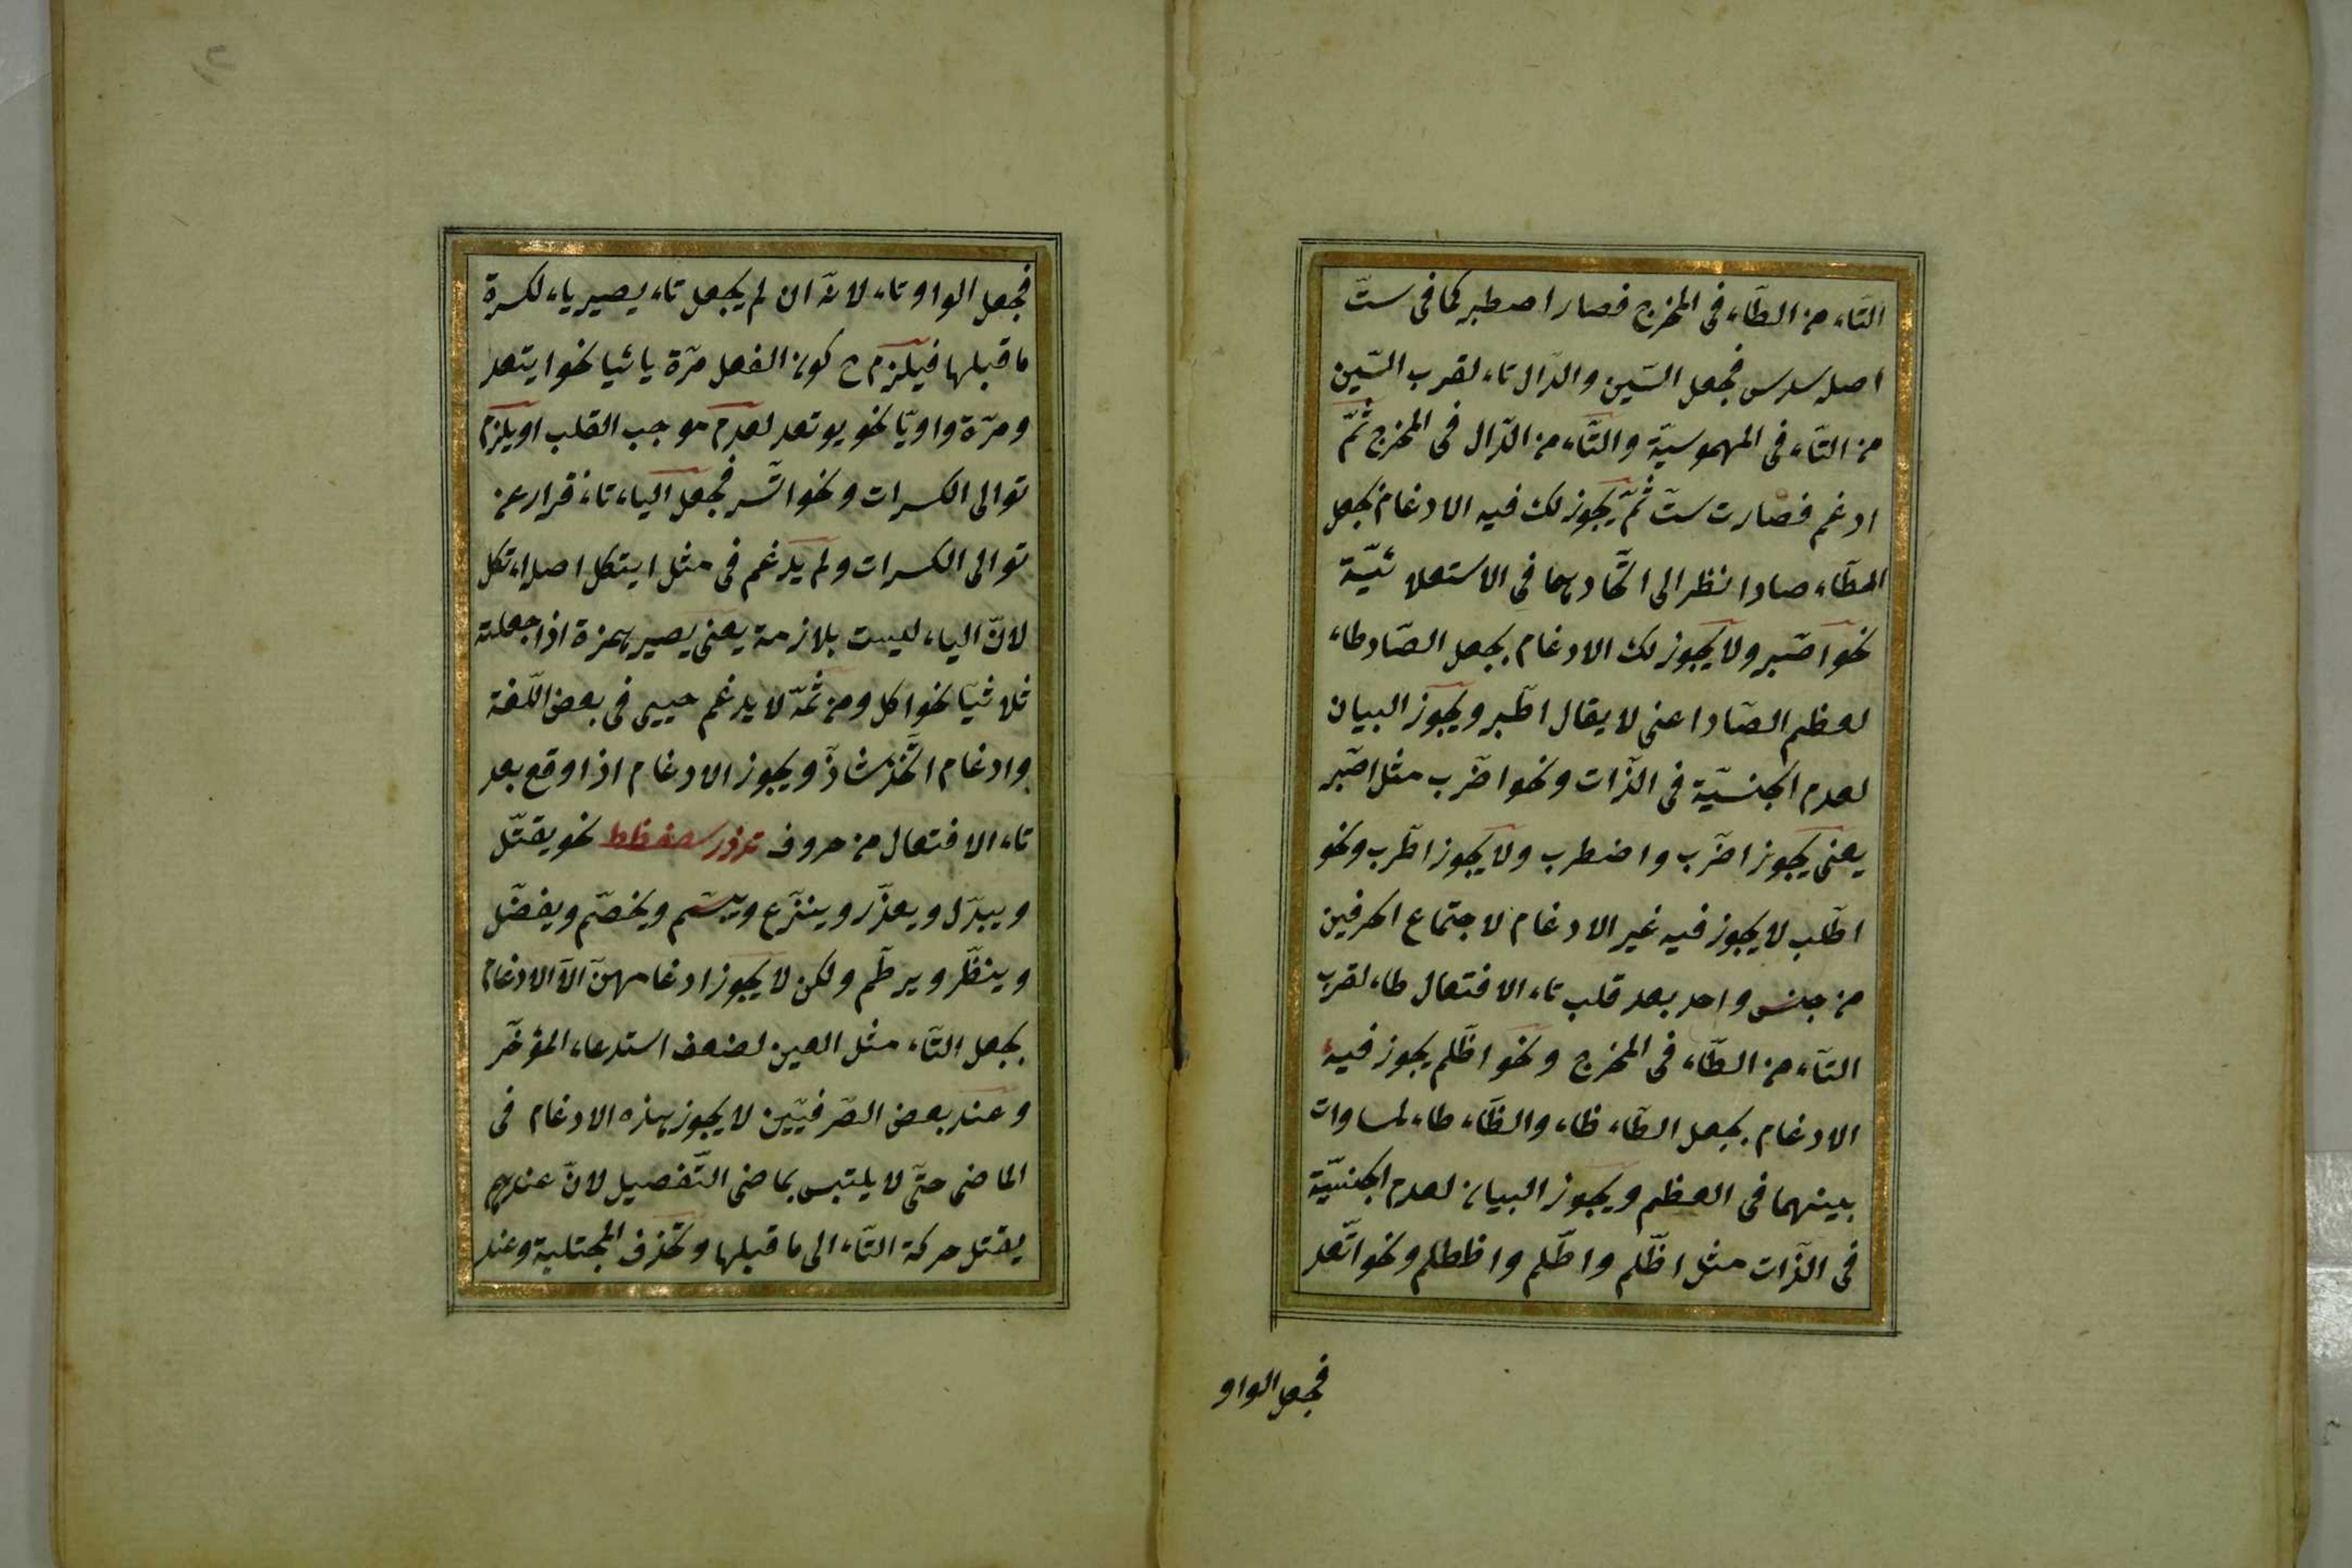 التّاء من الطّاء فى المخرج فصار اصطبر كما فى ستّ
اصله سدس فجعل السّين والدّال تاء لقرب السّين
من التّاء فى المهموسيّة والتّاء من الدّال فى المخرج ثمّ
ادغم فصارت ستّ ثمّ يجوز لك فيه الادغام بجعل
الطّاء صادا نظر الى اتّحادهما فى الاستعلائيّة
نحو اصّبر ولا يجوز لك الادغام بجعل الصّاد طاء
لعظم الصّاد اعنى لا يقال اطّبر ويجوز البيان
لعدم الجنسيّة فى الذّات ونحو اضّرب مثل اصّبر
يعنى يجوز اضّرب واضطرب ولا يجوز اطّرب ونحو
اطّلب لا يجوز فيه غير الادغام لاجتماع الحرفين
من جنس واحد بعد قلب تاء الافتعال طاء لقرب
التّاء من الطّاء فى المخرج ونحو اظّلم يجوز فيه
الادغام بجعل الطّاء ظاء والظّاء طاء لمساوات
بينهما فى العظم ويجوز البيان لعدم الجنسيّة
فى الذّات مثل اظّلم واطّلم واظطلم ونحو اتّعد
فجعل الواو
فجعل الواو تاء لانّه ان لم يجعل تاء يصير ياء لكسرة
ما قبلها فيلزم ح كون الفعل مرّة يائيا نحو ايتعد
ومرّة واويّا نحو يوتعد لعدم موجب القلب او يلزم
توالى الكسرات ونحو اتّسر فجعل الياء تاء فرارا عن
توالى الكسرات ولم يدغم فى مثل ايتكل اصله اءتكل
لانّ الياء ليست بلازمة يعنى يصير همزة اذا جعلته
ثلاثيّا نحو اكل ومن ثمّة لا يدغم حيى فى بعض اللّغة
وادغام اتّخذ شاذّ ويجوز الادغام اذا وقع بعد
تاء الافتعال من حروف تدذزسصضطظ نحو يقتّل
ويبدّل ويعذّر وينزّع ويبسّم ويخصّم ويفضّل
وينظّر ويرطّم ولكن لا يجوز ادغامهنّ الّا الادغام
بجعل التّاء مثل العين لضعف استدعاء المؤخّر
وعند بعض الصّرفيّين لا يجوز هذه الادغام فى
الماضى حتّى لا يلتبس بماضى التّفصيل لانّ عندهم
يقتل حركة التّاء الى ما قبلها وتحذف المجتلبة وعند